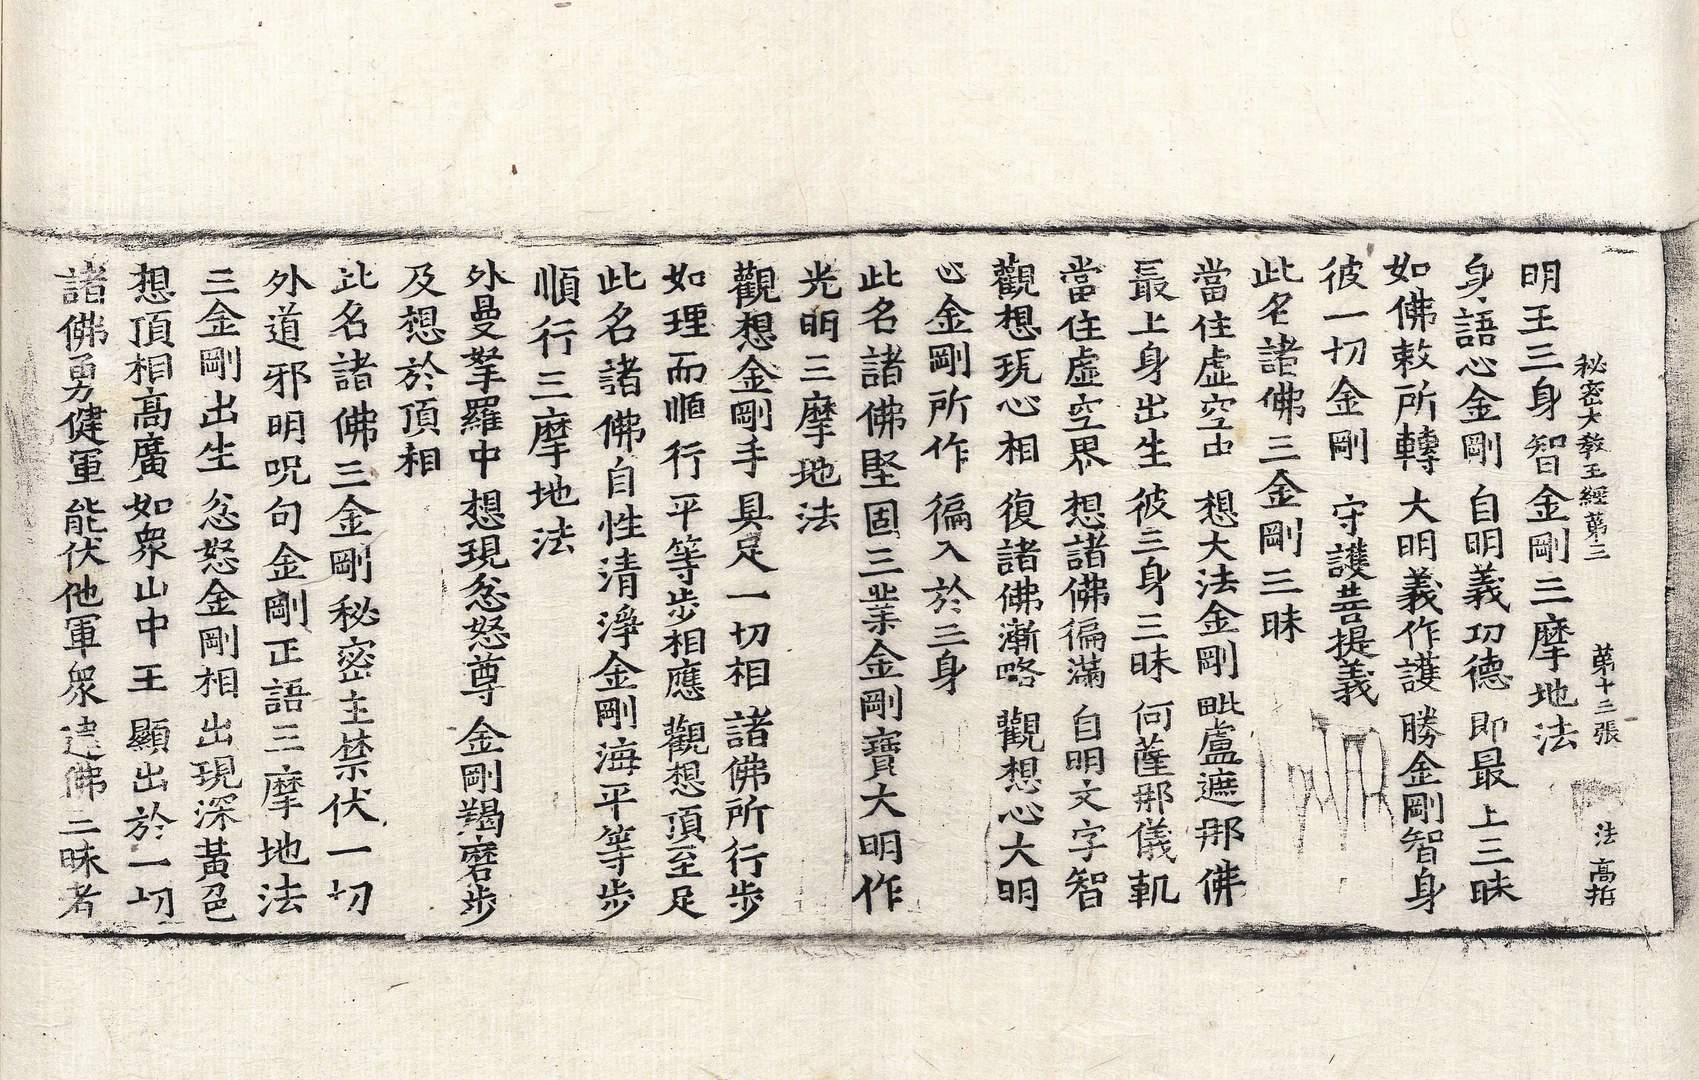 秘密大教王經第三 第十三張 法 高抬
明王三身智金剛三摩地法
身語心金剛 自明義功德 即最上三昧
如佛敕所轉 大明義作護 勝金剛智身
彼一切金剛 守護菩提義
此名諸佛三金剛三昧
當住虛空中 想大法金剛 毗盧遮那佛
最上身出生 彼三身三昧 何薩那儀軌
當住虛空界 想諸佛徧滿 自明文字智
觀想現心相 復諸佛漸略 觀想心大明
心金剛所作 徧入於三身
此名諸佛堅固三業金剛寶大明作
光明三摩地法
觀想金剛手 具足一切相 諸佛所行步
如理而順行 平等步相應 觀想頂至足
此名諸佛自性清淨金剛海平等步
順行三摩地法
外曼拏羅中 想現忿怒尊 金剛羯磨步
及想於頂相
此名諸佛三金剛秘密主禁伏一切
外道邪明呪句金剛正語三摩地法
三金剛出生 忿怒金剛相 出現深黃色
想頂相高廣 如眾山中王 顯出於一切
諸佛勇健軍 能伏他軍眾 達佛三昧者